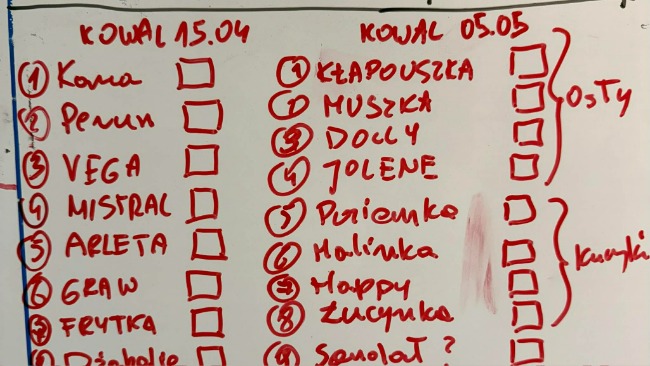 KOWAL 15.04
① Kama
② Perun
③ VEGA
④ MISTRAL
⑤ ARLETA
⑥ GRAW
⑦ FRYTKA
KOWAL 05.05
① KŁAPOUSZKA
② MUSZKA
③ DOLLY
④ JOLENE
OSTY
⑤ Poziomka
⑥ Malinka
⑦ Happy
⑧ Łucynka
Kucyki
⑨ Samolot?